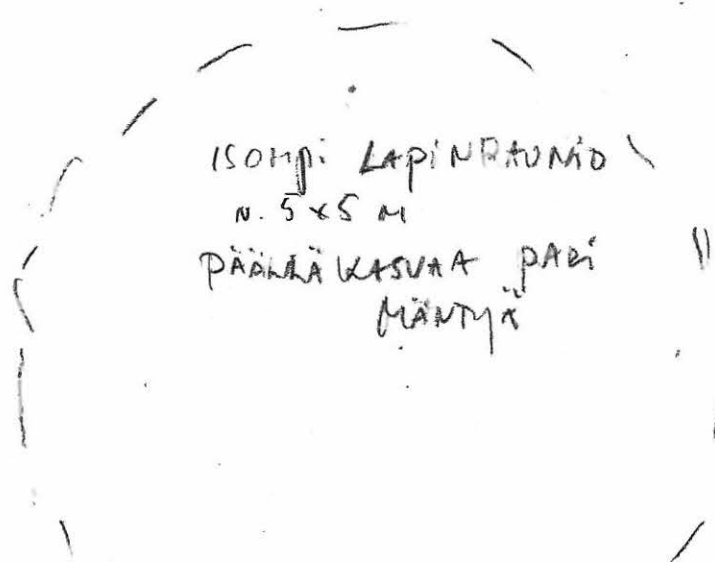 ISOMPI LAPINRAUNIO
N. 5 x 5 M
PÄÄLLÄ KASVAA PARI
MÄNTYÄ